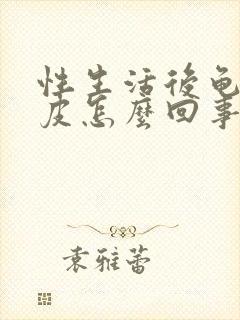 性生活後龟
皮怎麽回事
袁雅蕾